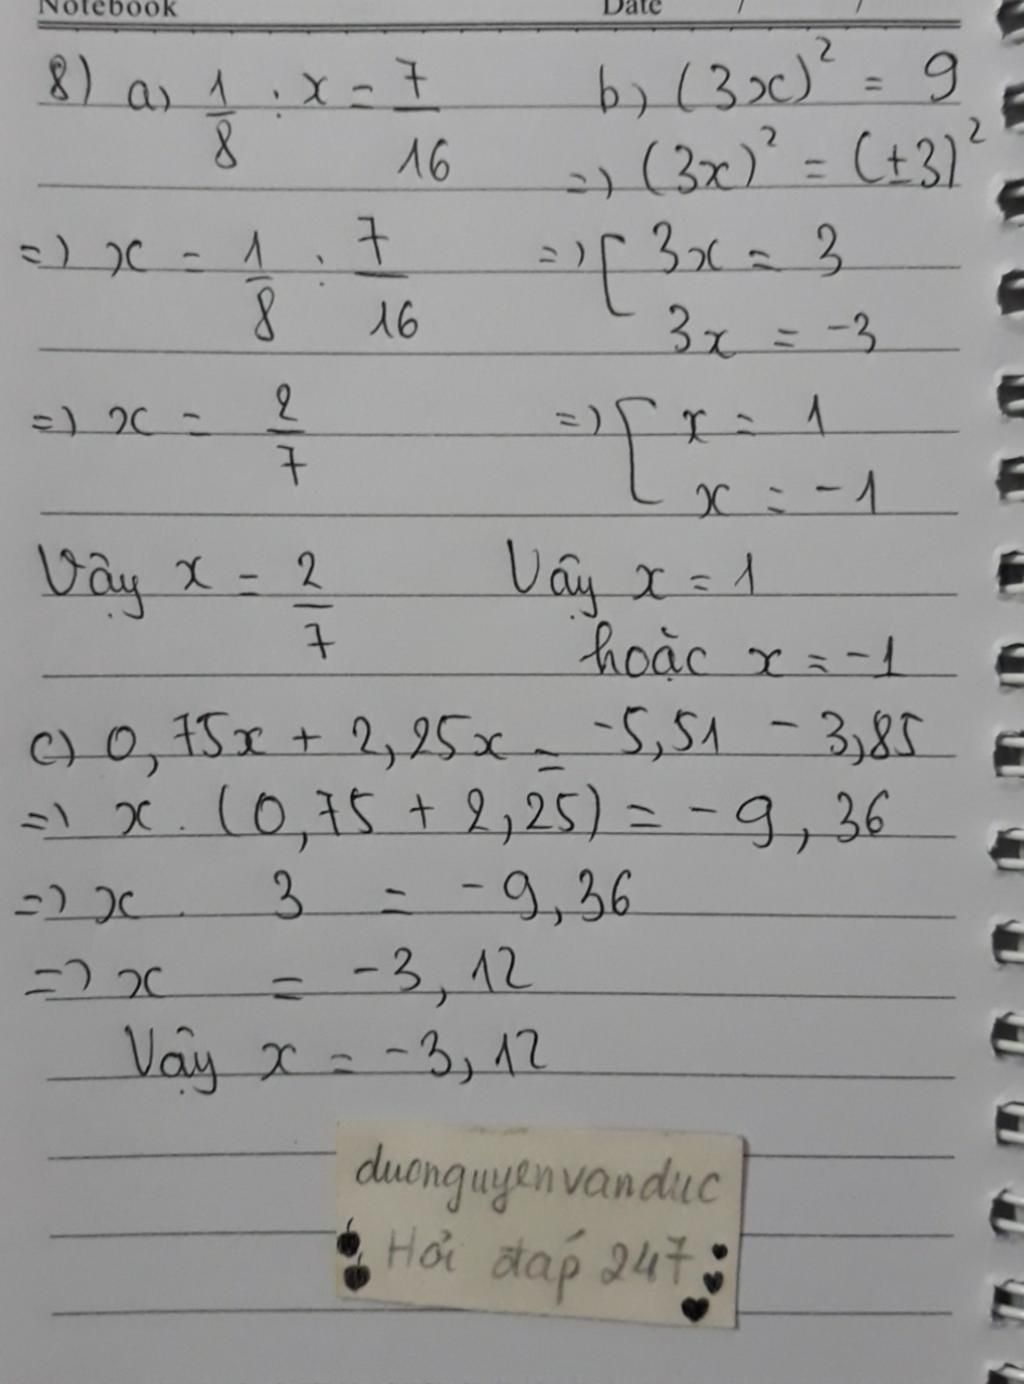 Notebook Date / /
8) a) 1/8 : x = 7/16
=> x = 1/8 : 7/16
=> x = 2/7
Vậy x = 2/7
b) (3x)² = 9
=> (3x)² = (±3)²
=> [ 3x = 3
3x = -3
=> [ x = 1
x = -1
Vậy x = 1
hoặc x = -1
c) 0,75x + 2,25x = -5,51 - 3,85
=> x . (0,75 + 2,25) = -9,36
=> x . 3 = -9,36
=> x = -3,12
Vậy x = -3,12
duonguyenvanduc
Hỏi đáp 247